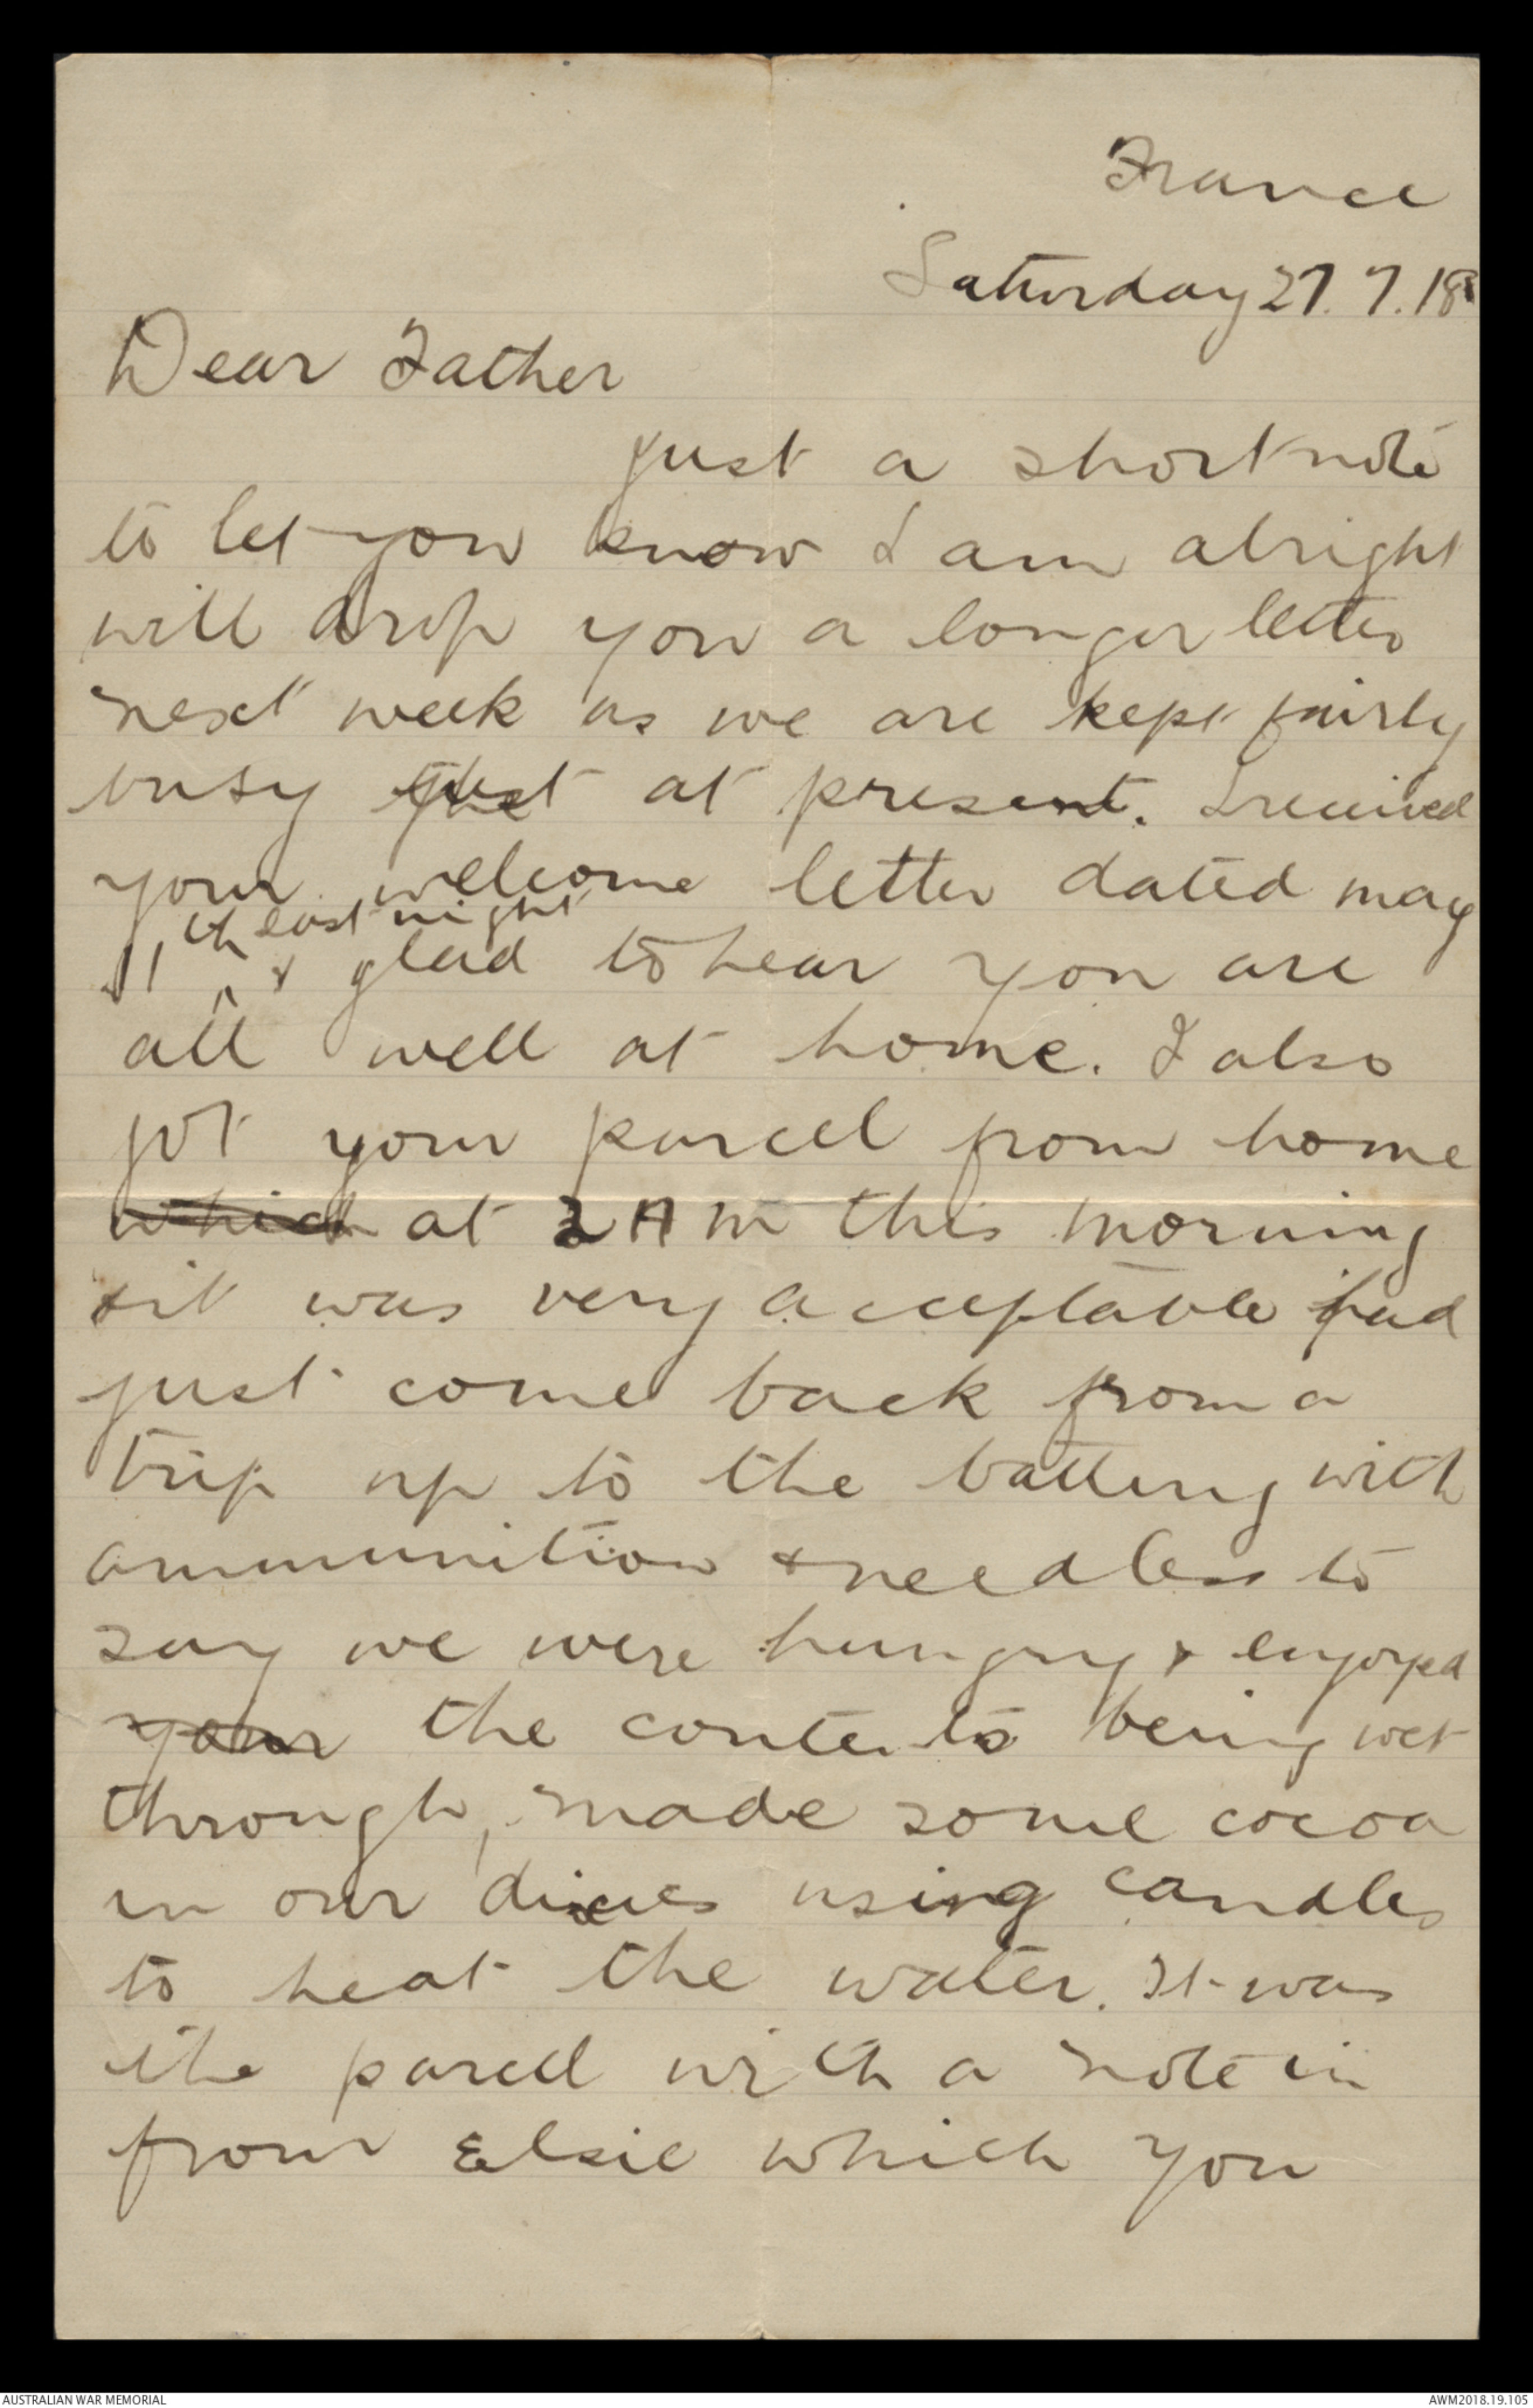 France
Saturday 27.7.18
Dear Father
just a short note
to let you know I am alright
will drop you a longer letter
next week as we are kept fairly
busy just at present. I received
your welcome letter dated may
11th last night & glad to hear you are
all well at home. I also
got your parcel from home
which at 2 AM this morning
& it was very acceptable had
just come back from a
trip up to the battery with
ammunition & needless to
say we were hungry & enjoyed
your the contents being wet
through, made some cocoa
in our dixies using candles
to heat the water. It was
the parcel with a note in
from Elsie which you
AUSTRALIAN WAR MEMORIAL
AWM2018.19.105